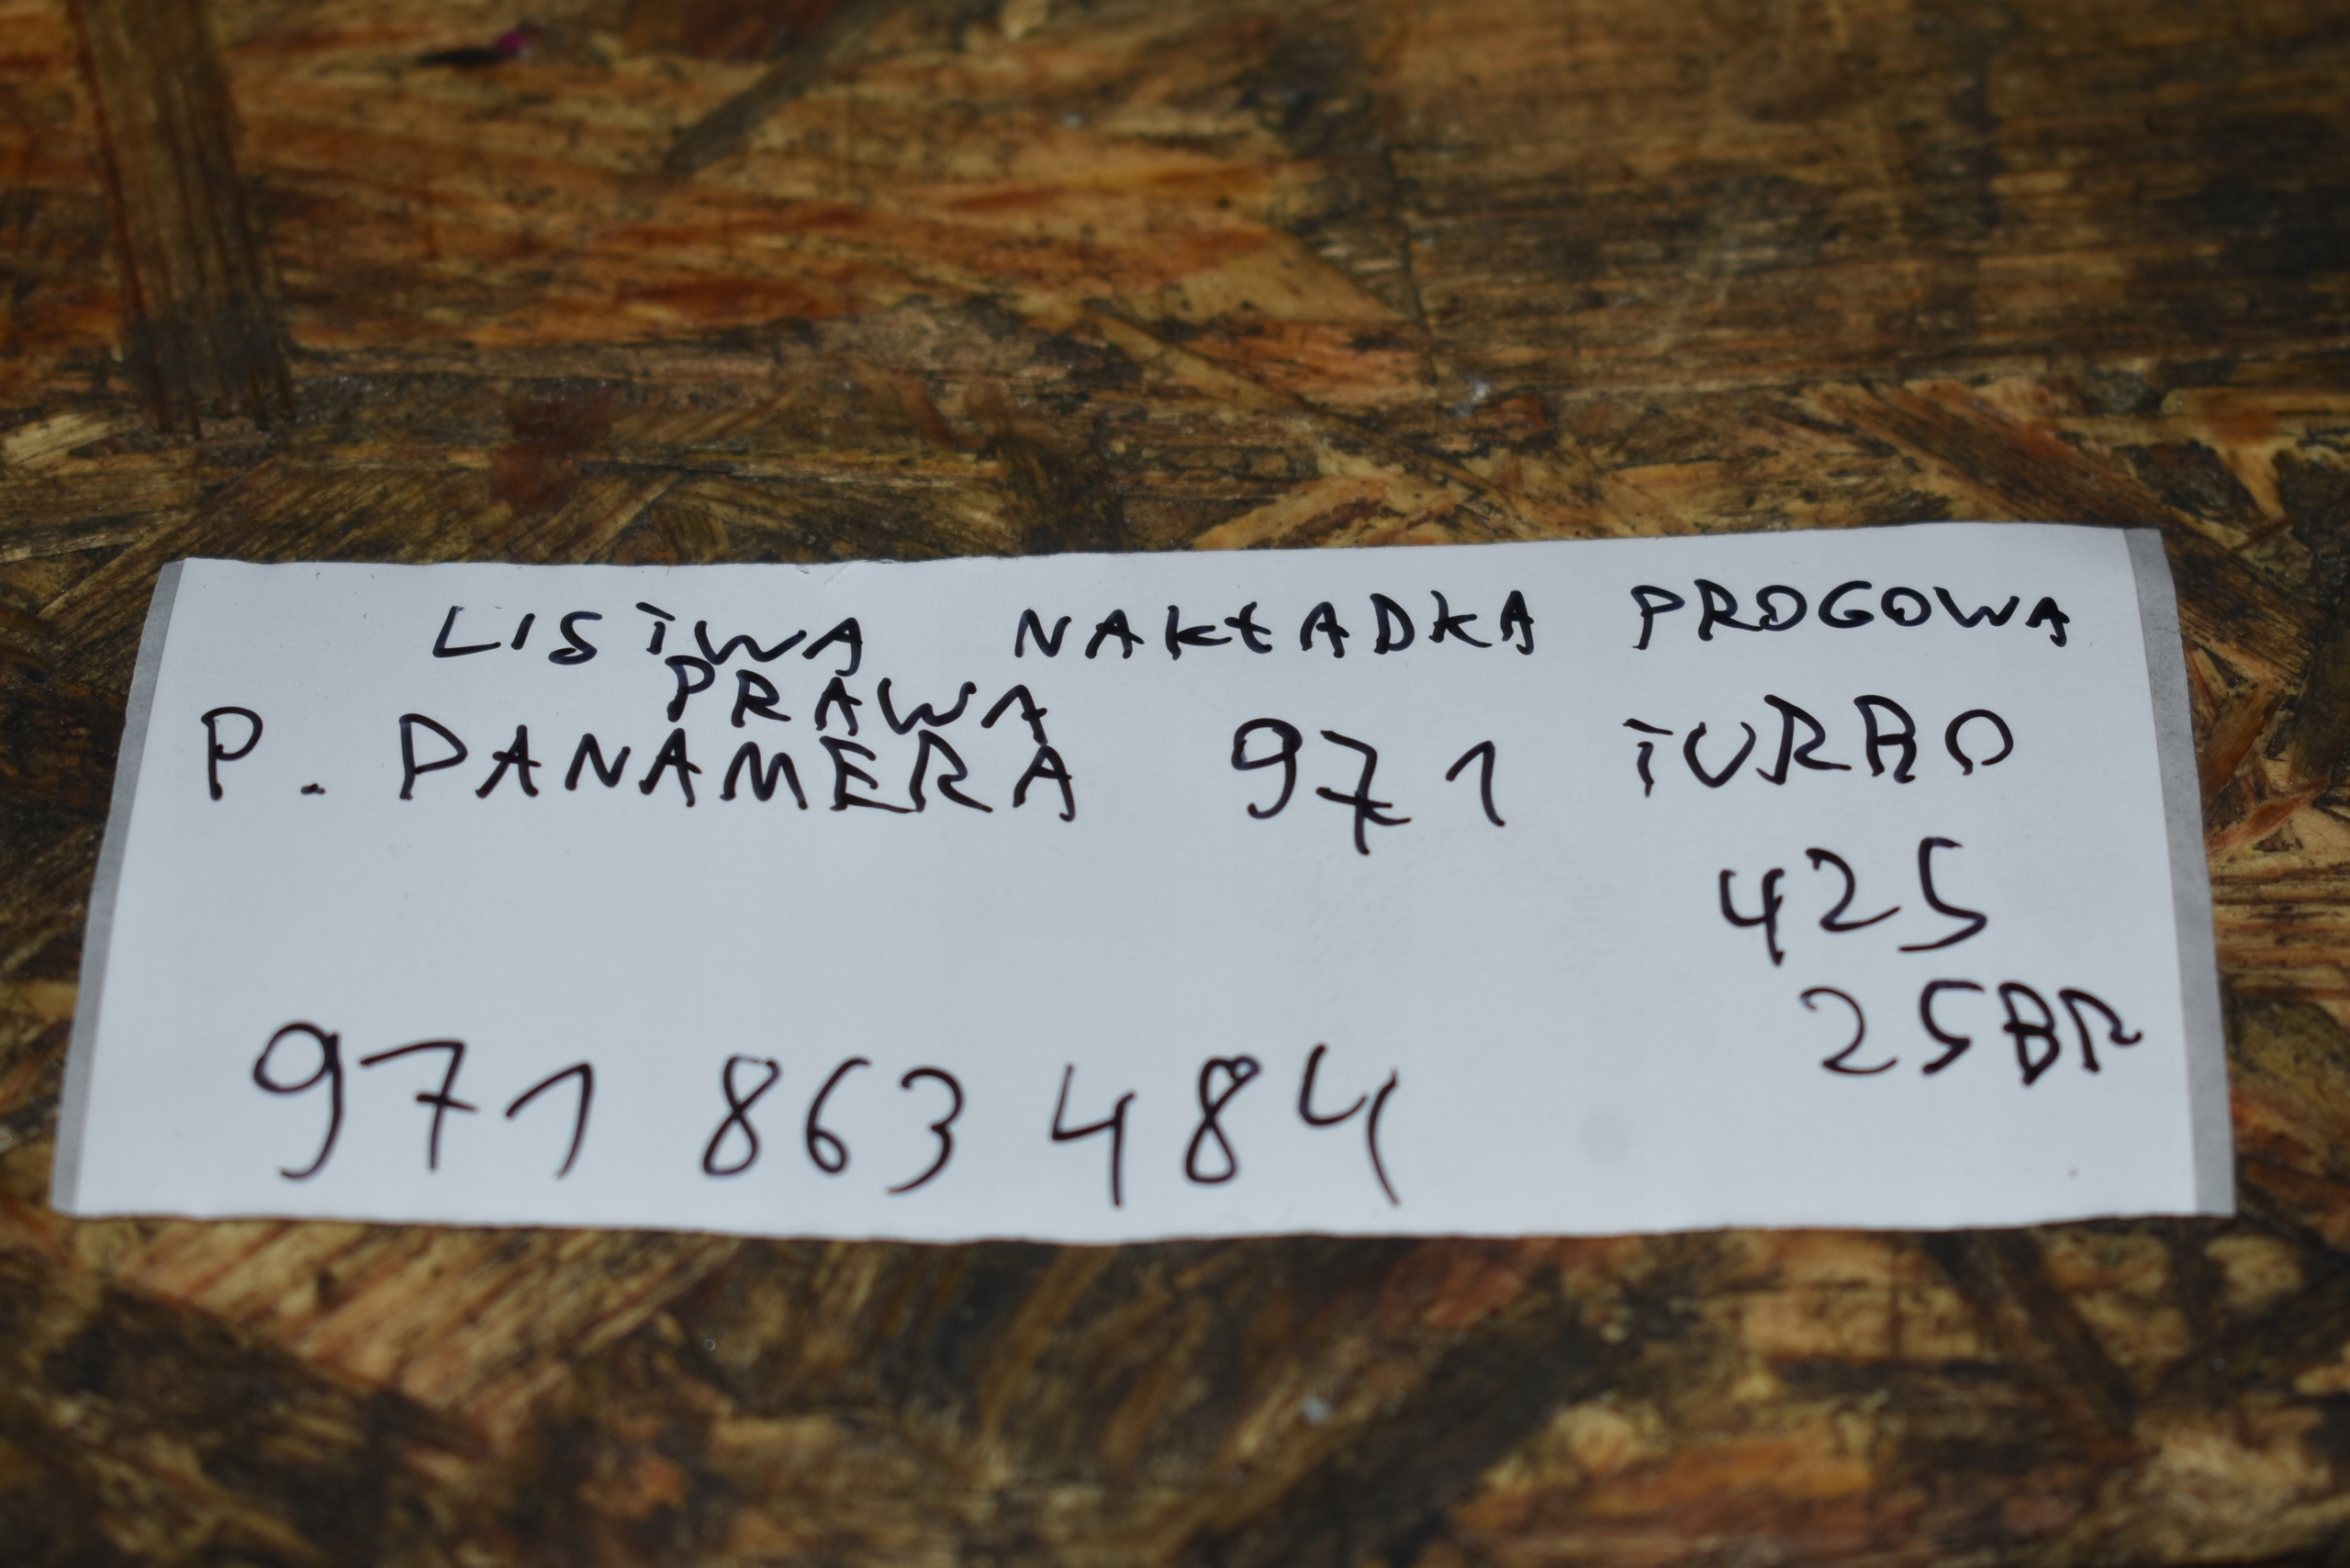 LISTWA NAKŁADKA PROGOWA
PRAWA
P. PANAMERA 971 TURBO
425
25BR
971 863 484